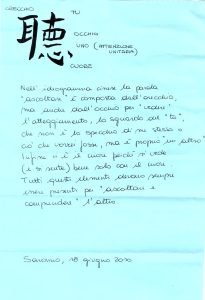 ORECCHIO
TU
聽
OCCHIO
UNO (ATTENZIONE
UNITARIA)
CUORE
Nell' ideogramma cinese la parola
"ascoltare" è composta dall'orecchio,
ma anche dall'occhio per "vedere"
l'atteggiamento, lo sguardo del "tu",
che non è lo specchio di me stesso o
ciò che vorrei fosse, ma è proprio un altro
Infine vi è il cuore perché si vede
(e si sente) bene solo con il cuore.
Tutti questi elementi devono sempre
essere presenti per "ascoltare e
comprendere" l'altro
18 giugno